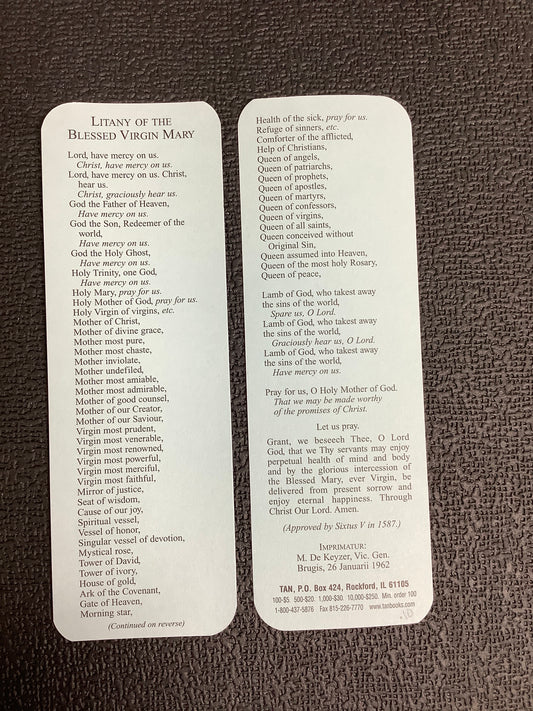 LITANY OF THE
BLESSED VIRGIN MARY
Lord, have mercy on us.
Christ, have mercy on us.
Lord, have mercy on us. Christ,
hear us.
Christ, graciously hear us.
God the Father of Heaven,
Have mercy on us.
God the Son, Redeemer of the
world,
Have mercy on us.
God the Holy Ghost,
Have mercy on us.
Holy Trinity, one God,
Have mercy on us.
Holy Mary, pray for us.
Holy Mother of God, pray for us.
Holy Virgin of virgins, etc.
Mother of Christ,
Mother of divine grace,
Mother most pure,
Mother most chaste,
Mother inviolate,
Mother undefiled,
Mother most amiable,
Mother most admirable,
Mother of good counsel,
Mother of our Creator,
Mother of our Saviour,
Virgin most prudent,
Virgin most venerable,
Virgin most renowned,
Virgin most powerful,
Virgin most merciful,
Virgin most faithful,
Mirror of justice,
Seat of wisdom,
Cause of our joy,
Spiritual vessel,
Vessel of honor,
Singular vessel of devotion,
Mystical rose,
Tower of David,
Tower of ivory,
House of gold,
Ark of the Covenant,
Gate of Heaven,
Morning star,
(Continued on reverse)
Health of the sick, pray for us.
Refuge of sinners, etc.
Comforter of the afflicted,
Help of Christians,
Queen of angels,
Queen of patriarchs,
Queen of prophets,
Queen of apostles,
Queen of martyrs,
Queen of confessors,
Queen of virgins,
Queen of all saints,
Queen conceived without
Original Sin,
Queen assumed into Heaven,
Queen of the most holy Rosary,
Queen of peace,
Lamb of God, who takest away
the sins of the world,
Spare us, O Lord.
Lamb of God, who takest away
the sins of the world,
Graciously hear us, O Lord.
Lamb of God, who takest away
the sins of the world,
Have mercy on us.
Pray for us, O Holy Mother of God.
That we may be made worthy
of the promises of Christ.
Let us pray.
Grant, we beseech Thee, O Lord
God, that we Thy servants may enjoy
perpetual health of mind and body
and by the glorious intercession of
the Blessed Mary, ever Virgin, be
delivered from present sorrow and
enjoy eternal happiness. Through
Christ Our Lord. Amen.
(Approved by Sixtus V in 1587.)
IMPRIMATUR:
M. De Keyzer, Vic. Gen.
Brugis, 26 Januarii 1962
TAN, P.O. Box 424, Rockford, IL 61105
100-$5 500-$20. 1,000-$30 10,000-$250. Min. order 100
1-800-437-5876 Fax 815-226-7770 www.tanbooks.com
.10